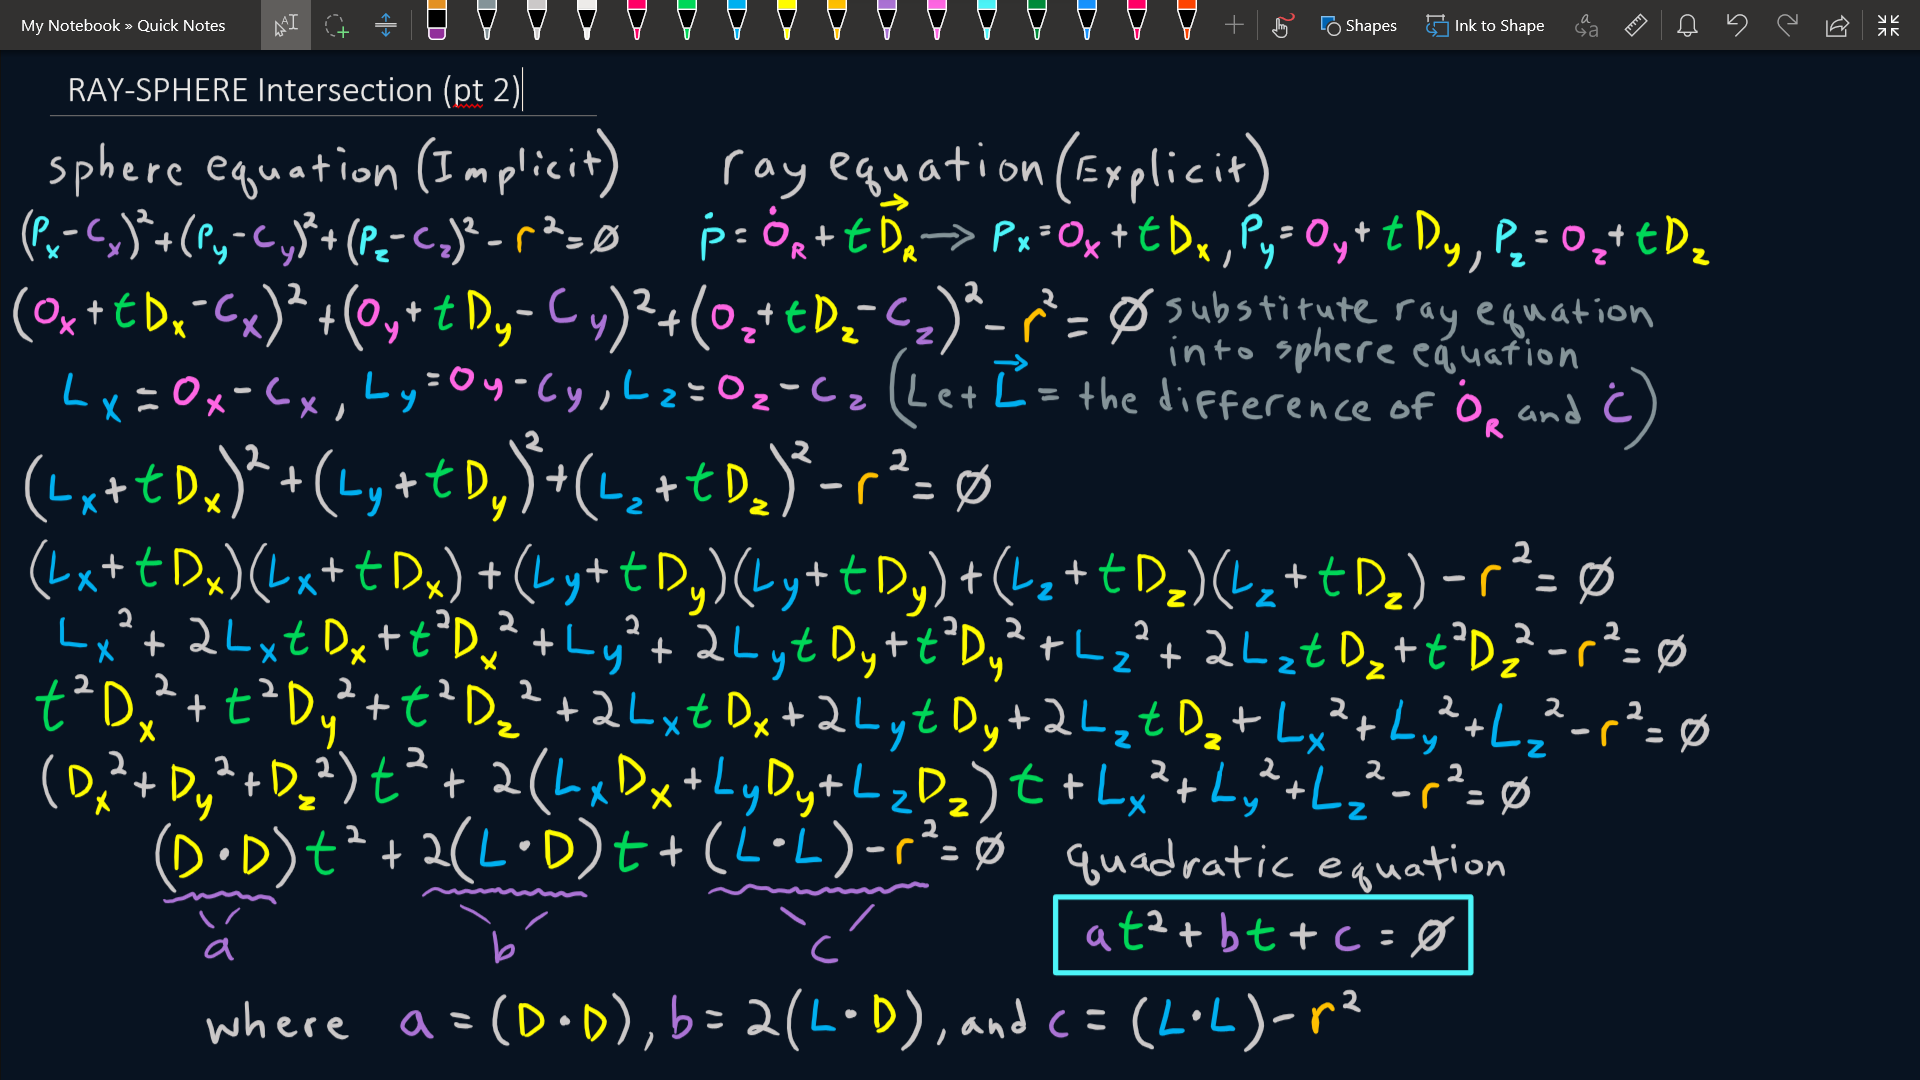 My Notebook » Quick Notes
Shapes
Ink to Shape
RAY-SPHERE Intersection (pt 2)
sphere equation (Implicit) ray equation (Explicit)
(Px - Cx)² + (Py - Cy)² + (Pz - Cz)² - r² = ∅ Ṗ = Ȯ_R + t D⃗_R → Px = Ox + tDx, Py = Oy + tDy, Pz = Oz + tDz
(Ox + tDx - Cx)² + (Oy + tDy - Cy)² + (Oz + tDz - Cz)² - r² = ∅ substitute ray equation
into sphere equation
Lx = Ox - Cx, Ly = Oy - Cy, Lz = Oz - Cz (Let L⃗ = the difference of Ȯ_R and Ċ)
(Lx + tDx)² + (Ly + tDy)² + (Lz + tDz)² - r² = ∅
(Lx + tDx)(Lx + tDx) + (Ly + tDy)(Ly + tDy) + (Lz + tDz)(Lz + tDz) - r² = ∅
Lx² + 2LxtDx + t²Dx² + Ly² + 2LytDy + t²Dy² + Lz² + 2LztDz + t²Dz² - r² = ∅
t²Dx² + t²Dy² + t²Dz² + 2LxtDx + 2LytDy + 2LztDz + Lx² + Ly² + Lz² - r² = ∅
(Dx² + Dy² + Dz²)t² + 2(LxDx + LyDy + LzDz)t + Lx² + Ly² + Lz² - r² = ∅
(D·D)t² + 2(L·D)t + (L·L) - r² = ∅ quadratic equation
a b c at² + bt + c = ∅
where a = (D·D), b = 2(L·D), and c = (L·L) - r²